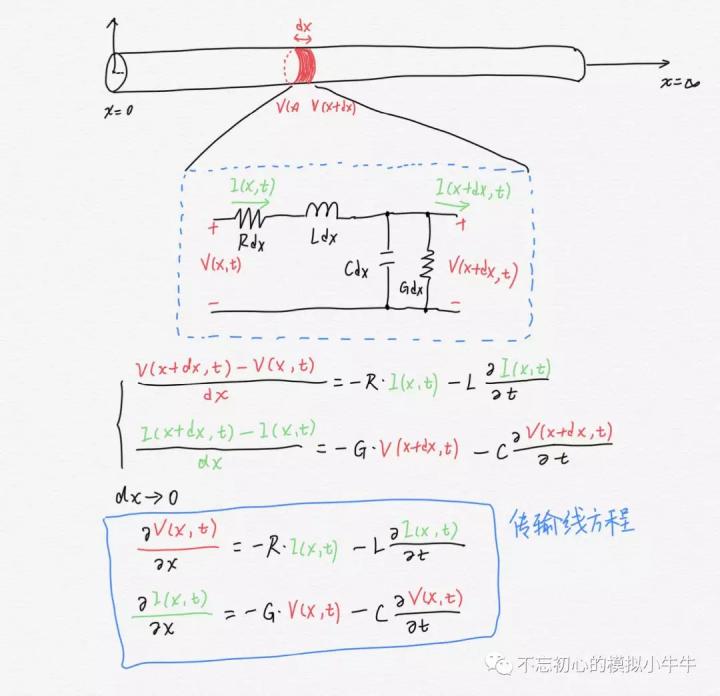 dx
x=0
x=∞
V(x) V(x+dx)
I(x,t)
I(x+dx,t)
+
+
Rdx
Ldx
V(x,t)
Cdx
Gdx
V(x+dx,t)
−
−
V(x+dx,t)−V(x,t)/dx = −R·I(x,t) − L ∂I(x,t)/∂t
I(x+dx,t)−I(x,t)/dx = −G·V(x+dx,t) − C ∂V(x+dx,t)/∂t
dx→0
∂V(x,t)/∂x = −R·I(x,t) − L ∂I(x,t)/∂t
传输线方程
∂I(x,t)/∂x = −G·V(x,t) − C ∂V(x,t)/∂t
不忘初心的模拟小牛牛